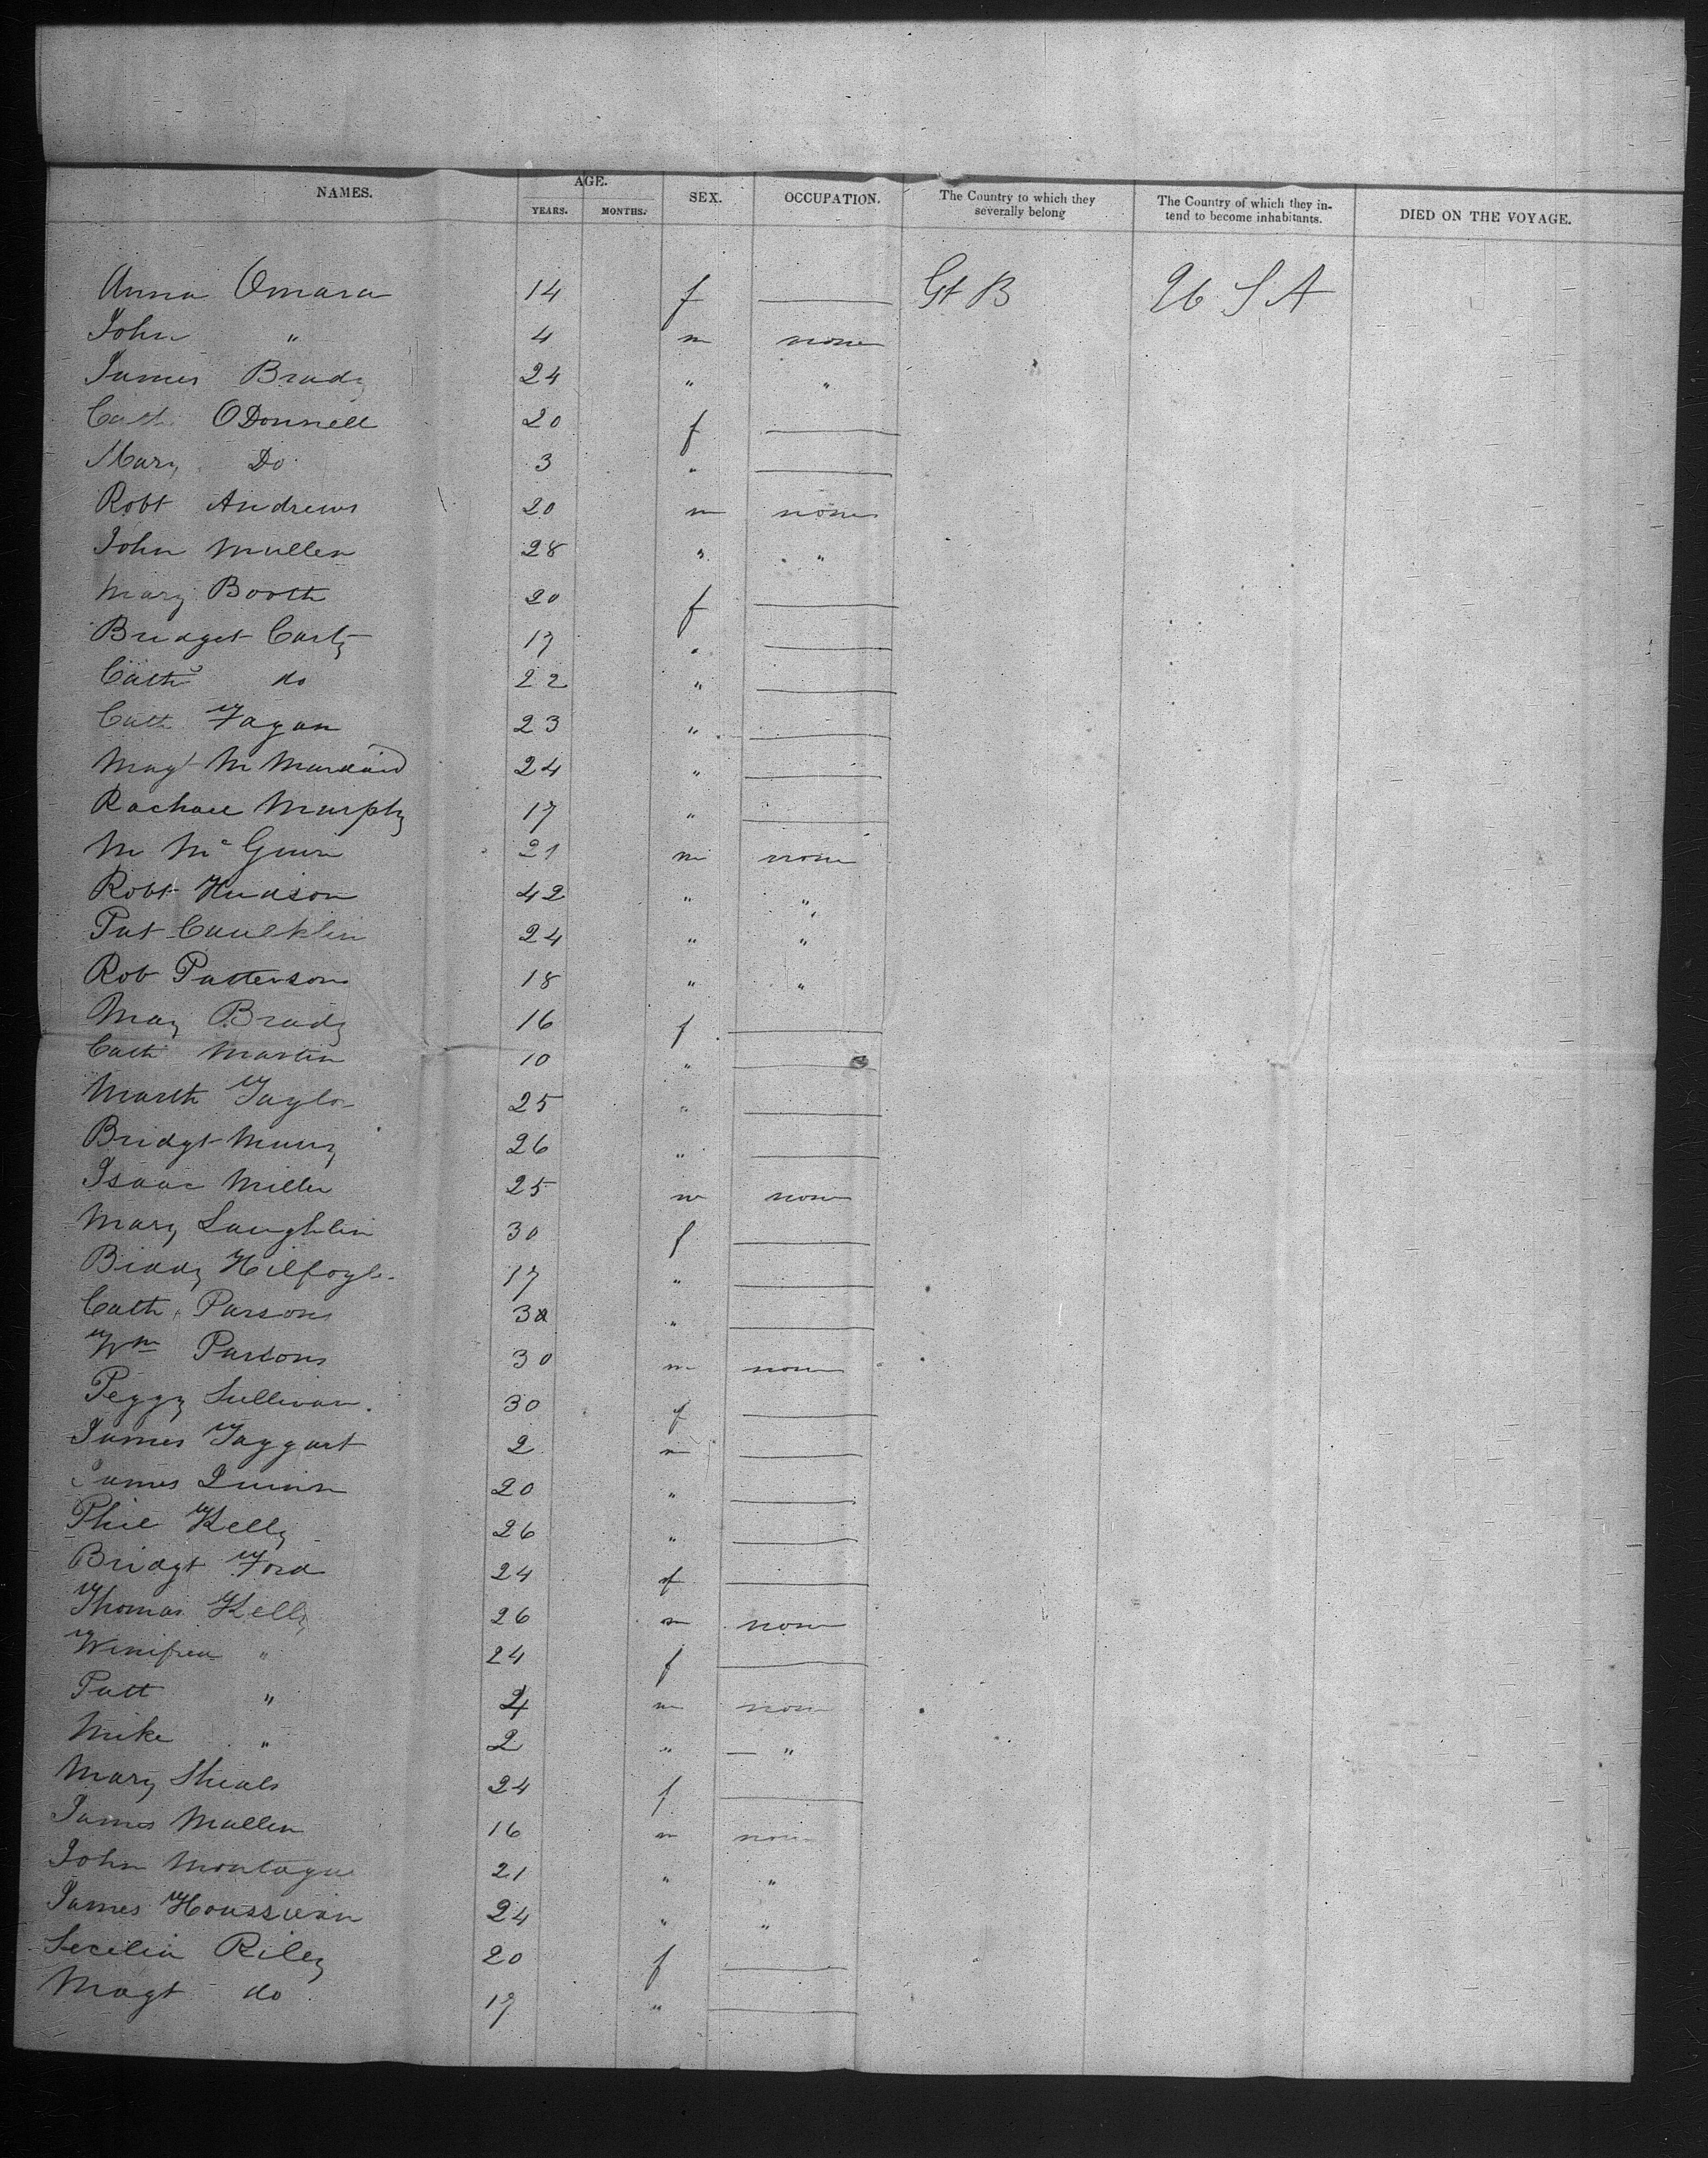 NAMES. AGE. SEX. OCCUPATION. The Country to which they severally belong The Country of which they in-tend to become inhabitants. DIED ON THE VOYAGE.
YEARS. MONTHS.
Anna Omara 14 f — Gt B U S A
John " 4 m none
James Brady 24 " "
Cath ODonnell 20 f —
Mary Do 3 " —
Robt Andrews 20 m none
John Mullen 28 " "
Mary Booth 20 f —
Bridget Carty 17 " —
Cath do 22 " —
Cath Fagan 23 " —
Magt M 24 " —
Rachael Murphy 17 " —
M Mc 21 m none
Robt Hudson 42 " "
Pat 24 " "
Rob Patterson 18 " "
May Brady 16 f —
Cath Martin 10 " —
Marth Taylor 25 " —
Bridgt 26 " —
Isaac Miller 25 m none
Mary Laughlin 30 f —
Biddy Kilfoyle 17 " —
Cath Parsons 30 " —
Wm Parsons 30 m none
Peggy Sullivan. 30 f —
James Taggart 2 m —
James Quinn 20 " —
Phil Kelly 26 " —
Bridgt Ford 24 f —
Thomas Kelly 26 m none
Winifred " 24 f —
Patt " 4 m none
Mike " 2 " — "
Mary Shiels 24 f —
James Mullen 16 m none
John Montague 21 " "
James 24 " "
Secelia Riley 20 f —
Magt do 17 " —